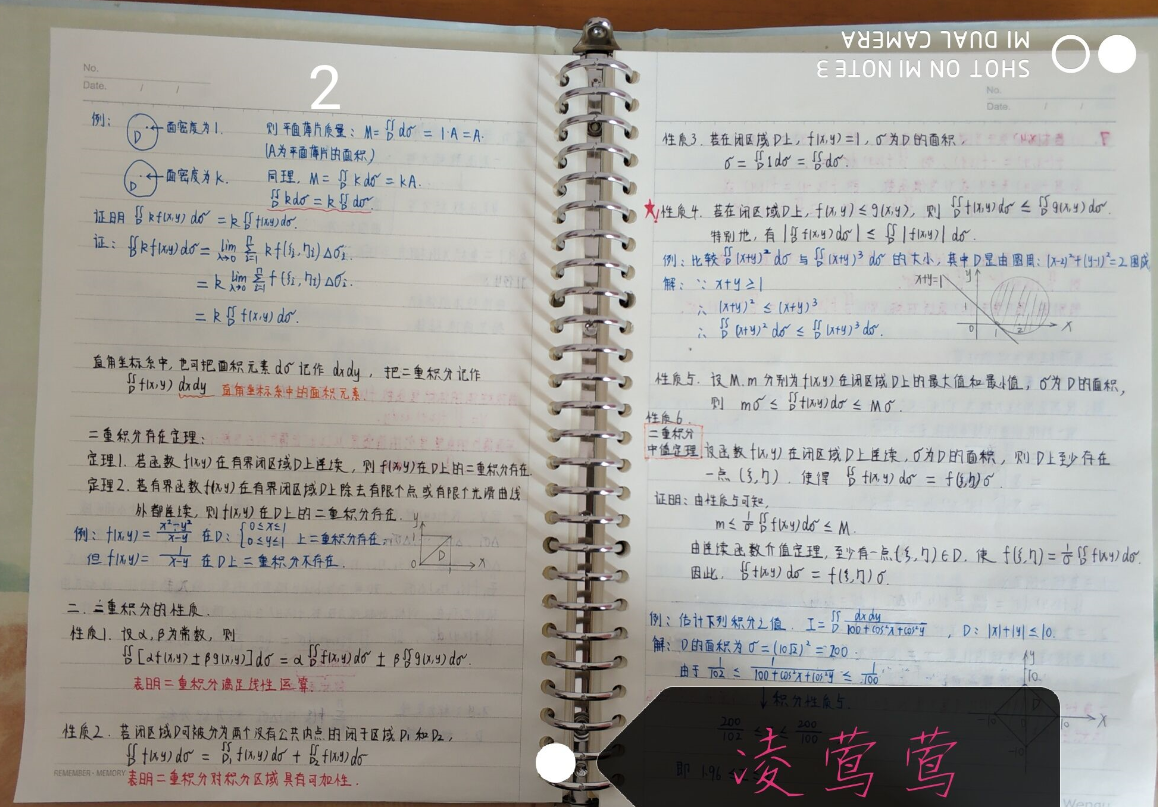 2
SHOT ON MI NOTE 3
MI DUAL CAMERA
No.
Date. / /
例:
D 面密度为1.
则平面薄片质量: M=∬_D dσ = 1·A=A.
(A为平面薄片的面积)
D 面密度为k.
同理, M=∬_D kdσ = kA.
∬_D kdσ = k∬_D dσ.
证明 ∬_D kf(x,y)dσ = k∬_D f(x,y)dσ.
证: ∬_D kf(x,y)dσ = lim_{λ→0} Σ_{i=1}^n kf(ξᵢ,ηᵢ)Δσᵢ.
= k lim_{λ→0} Σ_{i=1}^n f(ξᵢ,ηᵢ)Δσᵢ.
= k∬_D f(x,y)dσ.
直角坐标系中,也可把面积元素dσ记作dxdy,把二重积分记作
∬_D f(x,y)dxdy 直角坐标系中的面积元素
二重积分存在定理:
定理1. 若函数f(x,y)在有界闭区域D上连续,则f(x,y)在D上的二重积分存在.
定理2. 若有界函数f(x,y)在有界闭区域D上除去有限个点或有限个光滑曲线
外都连续,则f(x,y)在D上的二重积分存在.
例: f(x,y)=(x²-y²)/(x-y) 在D: {0≤x≤1 0≤y≤1 上二重积分存在.
但 f(x,y)=1/(x-y) 在D上二重积分不存在.
y
1
D
0 1 x
二. 二重积分的性质.
性质1. 设α,β为常数,则
∬_D[αf(x,y)±βg(x,y)]dσ=α∬_D f(x,y)dσ ± β∬_D g(x,y)dσ.
表明二重积分满足线性运算
性质2. 若闭区域D可被分为两个没有公共内点的闭子区域D₁和D₂,
∬_D f(x,y)dσ = ∬_{D₁} f(x,y)dσ + ∬_{D₂} f(x,y)dσ
REMEMBER·MEMORY
表明二重积分对积分区域具有可加性.
No.
Date. / /
性质3. 若在闭区域D上, f(x,y)=1, σ为D的面积,
σ=∬_D 1dσ=∬_D dσ.
★性质4. 若在闭区域D上, f(x,y)≤g(x,y), 则 ∬_D f(x,y)dσ ≤ ∬_D g(x,y)dσ.
特别地,有 |∬_D f(x,y)dσ| ≤ ∬_D |f(x,y)|dσ.
例:比较∬_D(x+y)²dσ 与 ∬_D(x+y)³dσ 的大小,其中D是由圆周:(x-2)²+(y-1)²=2围成
解: ∵ x+y≥1
∴ (x+y)² ≤ (x+y)³
∴ ∬_D(x+y)²dσ ≤ ∬_D(x+y)³dσ.
x+y=1 y
0 1 2 x
性质5. 设M,m分别为f(x,y)在闭区域D上的最大值和最小值, σ为D的面积,
则 mσ ≤ ∬_D f(x,y)dσ ≤ Mσ.
性质6.
二重积分
中值定理 设函数f(x,y)在闭区域D上连续,σ为D的面积,则D上至少存在
一点(ξ,η). 使得 ∬_D f(x,y)dσ = f(ξ,η)σ.
证明:由性质5可知,
m≤(1/σ)∬_D f(x,y)dσ≤M.
由连续函数介值定理,至少有一点(ξ,η)∈D. 使 f(ξ,η)=(1/σ)∬_D f(x,y)dσ.
因此, ∬_D f(x,y)dσ = f(ξ,η)σ.
例: 估计下列积分之值. I=∬_D dxdy/(100+cos²x+cos²y), D: |x|+|y|≤10.
解: D的面积为σ=(10√2)²=200.
由于 1/102 ≤ 1/(100+cos²x+cos²y) ≤ 1/100
↓积分性质5.
200/102 ≤ ≤ 200/100
即 1.96 ≤
y
10
-10 x
凌莺莺